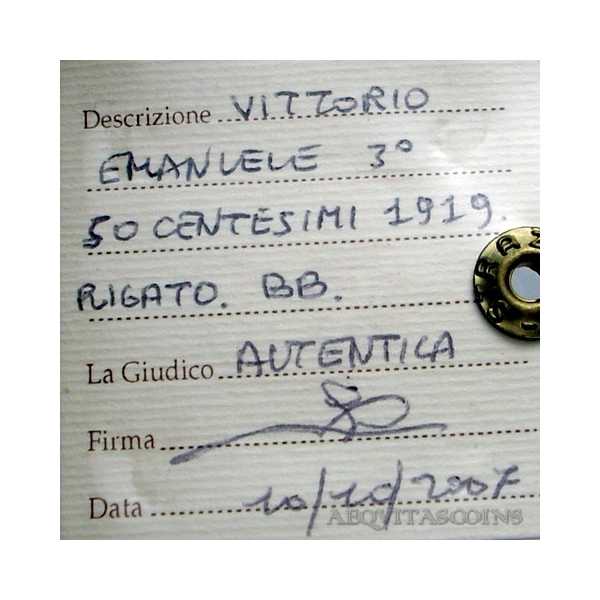 Descrizione VITTORIO
EMANUELE 3°
50 CENTESIMI 1919.
RIGATO. BB.
La Giudico AUTENTICA
Firma
Data 10/10/2007
AEQVITASCOINS